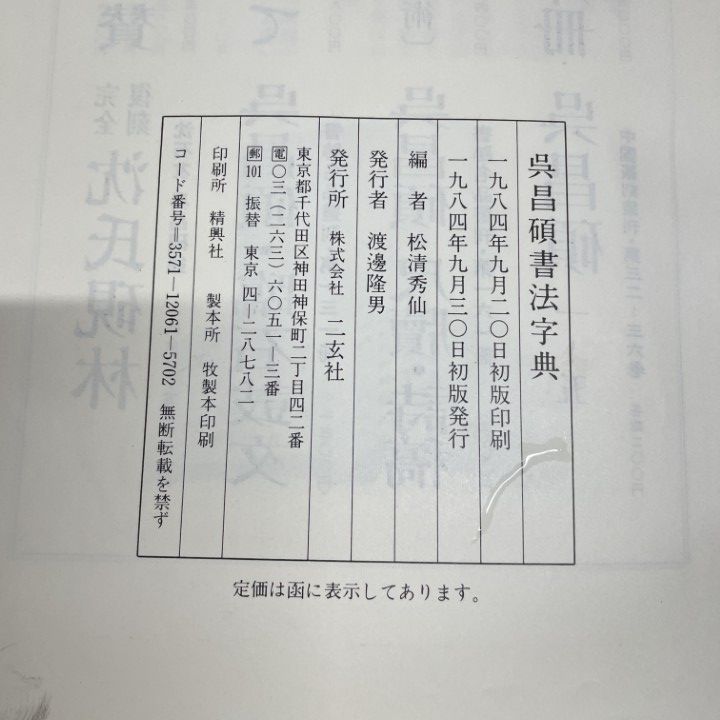 呉昌碩書法字典
一九八四年九月二〇日初版印刷
一九八四年九月三〇日初版発行
編者 松清秀仙
発行者 渡邊隆男
発行所 株式会社 二玄社
東京都千代田区神田神保町二丁目四二番
電〇三(二六三)六〇五一―三番
郵101 振替 東京 四―二八七八二
印刷所 精興社 製本所 牧製本印刷
コード番号=3571―12061―5702 無断転載を禁ず
定価は函に表示してあります。